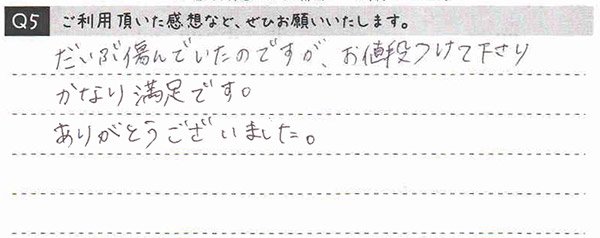 Q5 ご利用頂いた感想など、ぜひお願いいたします。
だいぶ傷んでいたのですが、お値段つけて下さり
かなり満足です。
ありがとうございました。